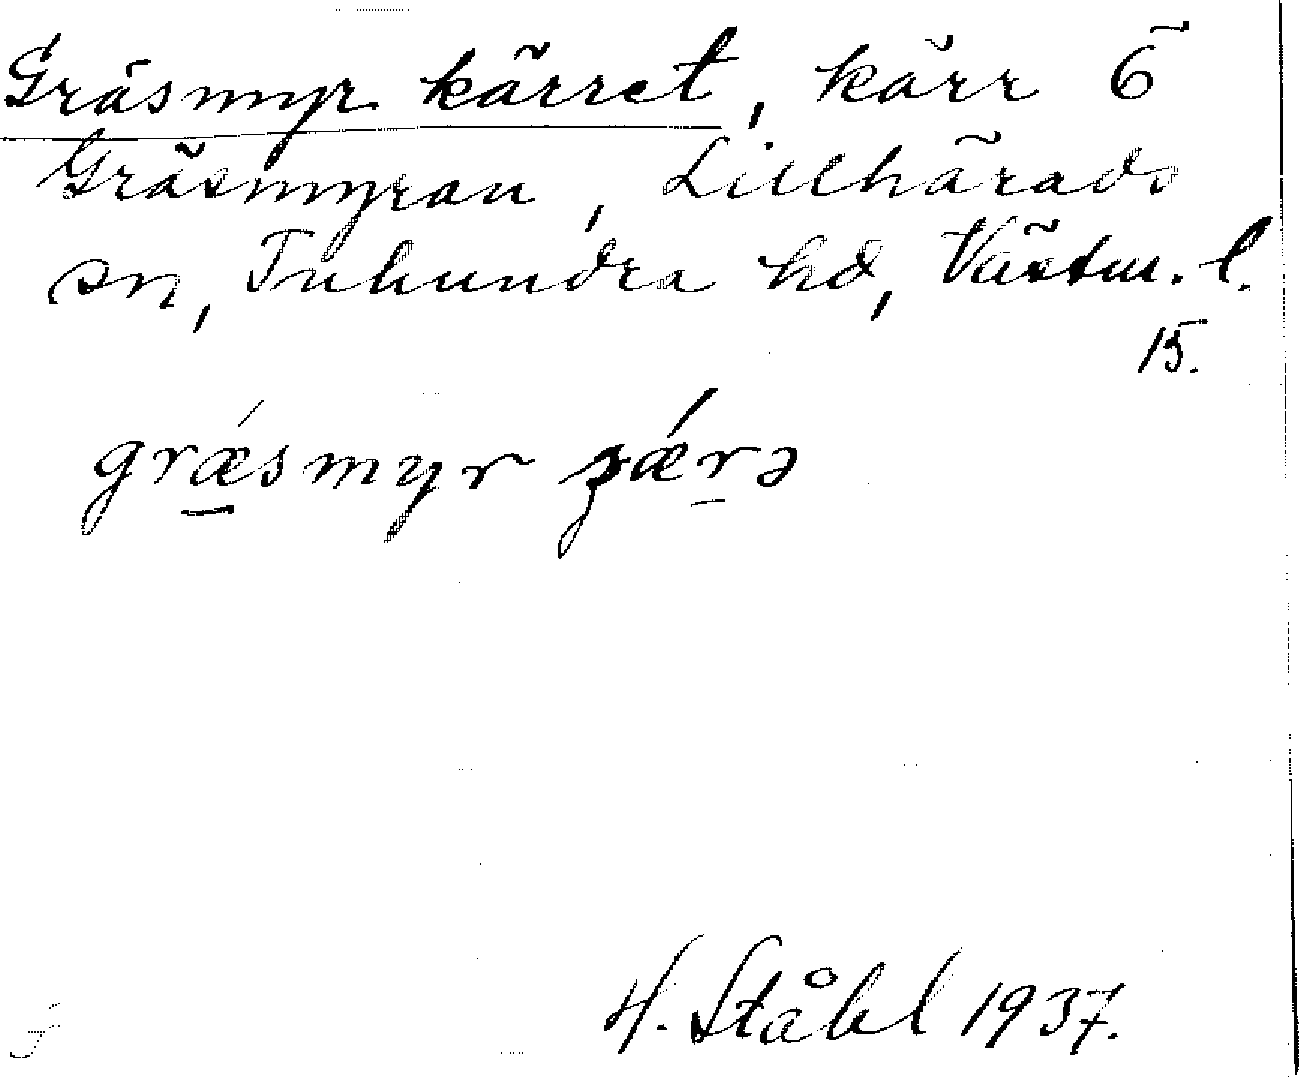 Gräsmyr kärret, kärr ö
Gräsmyran, Lillhärads
sn, Tuhundra hd, Västm. l.
15.
græsmyr çǽrə
H. Ståhl 1937.